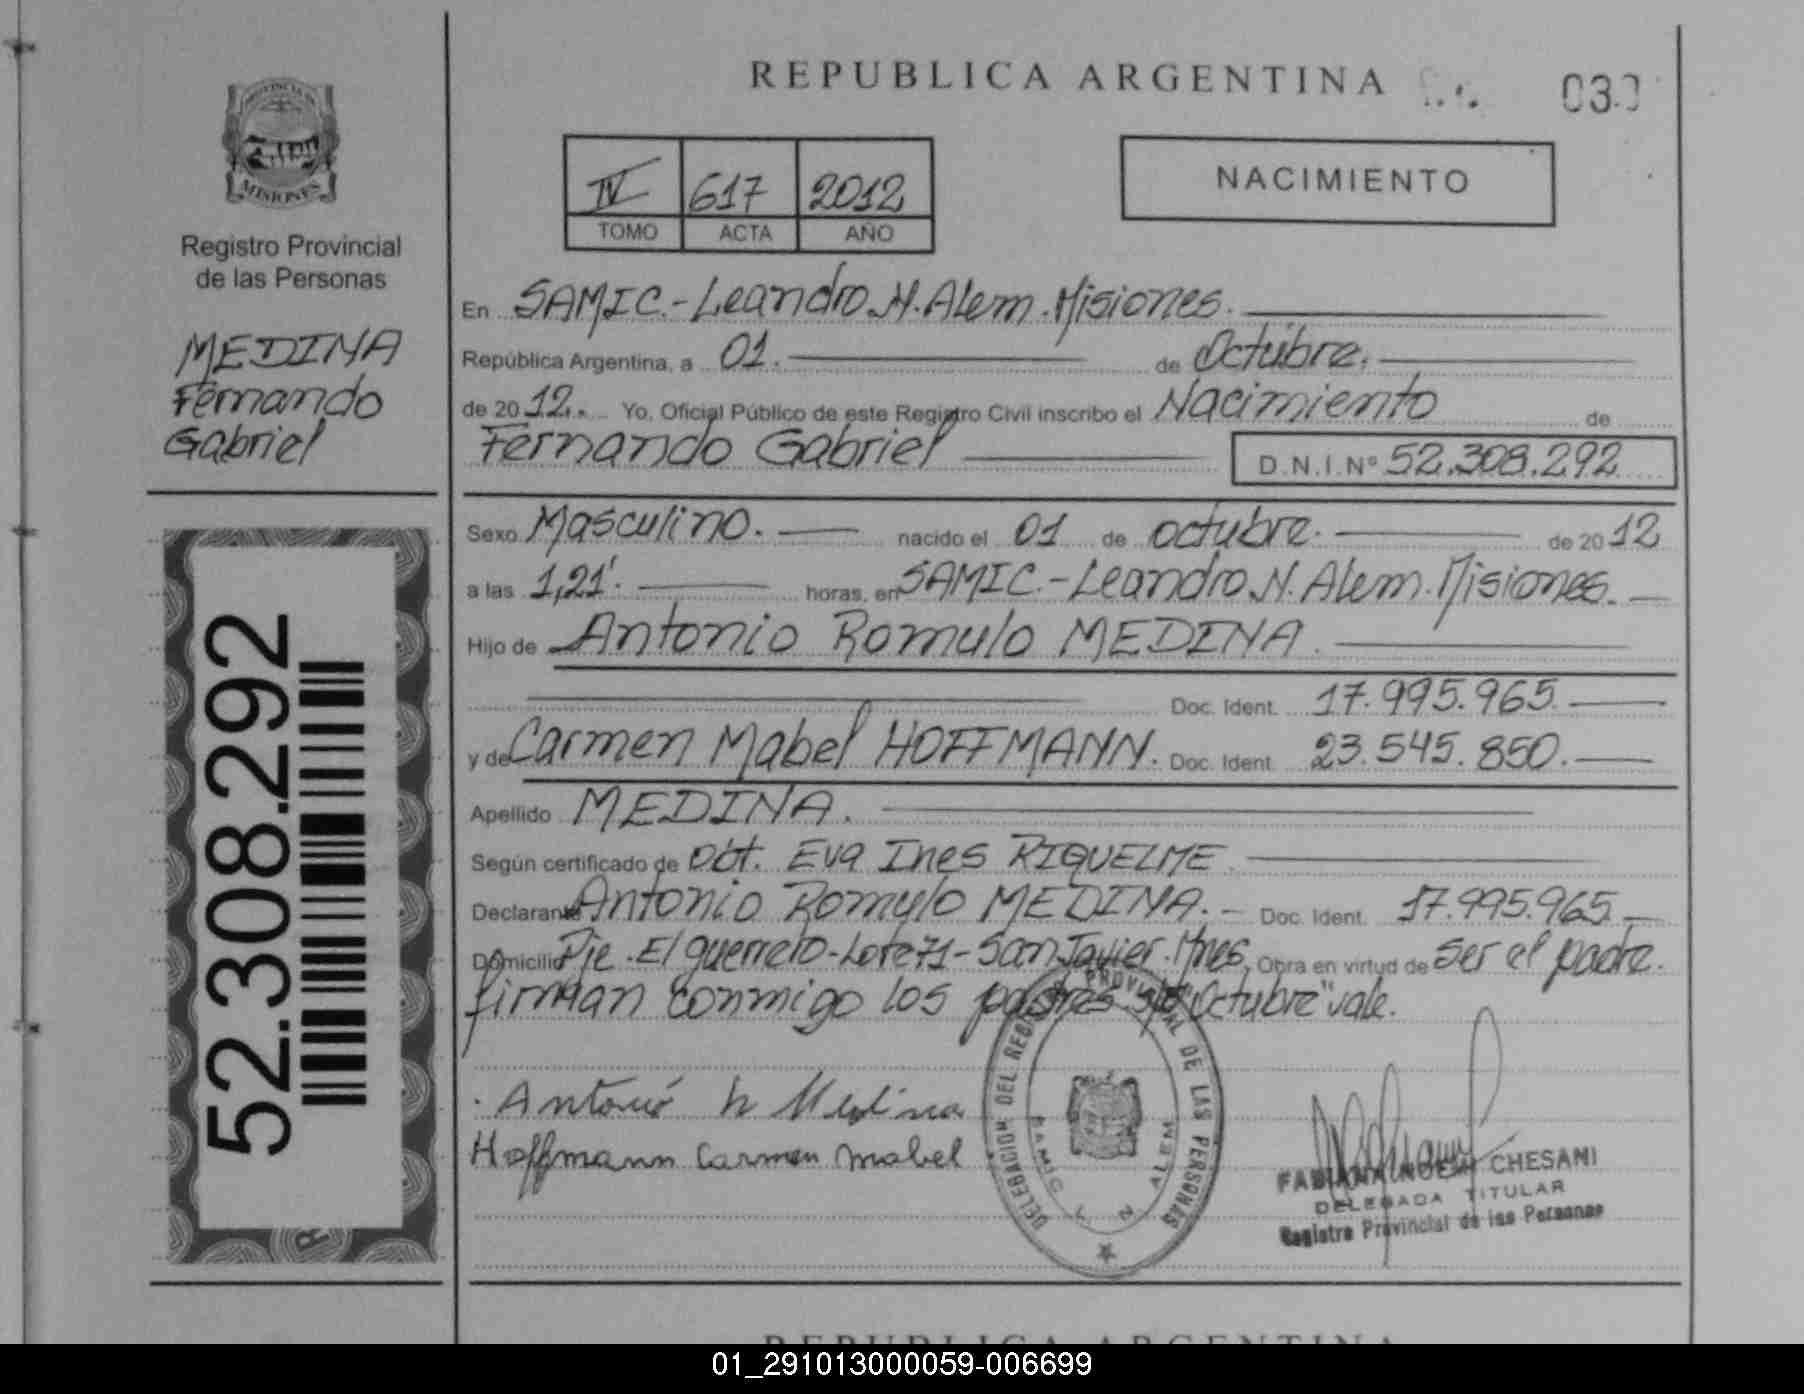 REPUBLICA ARGENTINA
PROVINCIA DE
MISIONES
Registro Provincial
de las Personas
MEDINA
Fernando
Gabriel
52.308.292
IV 617 2012
TOMO ACTA AÑO
NACIMIENTO
En SAMIC.-Leandro.N.Alem.Misiones.
República Argentina, a 01. de Octubre.
de 2012. Yo, Oficial Público de este Registro Civil inscribo el Nacimiento de
Fernando Gabriel D.N.I.Nº 52.308.292
Sexo Masculino. nacido el 01 de octubre. de 2012
a las 1,21'. horas, en SAMIC.-Leandro.N.Alem.Misiones.
Hijo de Antonio Romulo MEDINA.
Doc. Ident. 17.995.965.
y de Carmen Mabel HOFFMANN. Doc. Ident. 23.545.850.
Apellido MEDINA.
Según certificado de Obt. Eva Ines RIQUELME.
Declarante Antonio Romulo MEDINA.- Doc. Ident. 17.995.965.
Domicilio Pje. El guerrero-Lote 71-San Javier. Mnes. Obra en virtud de ser el padre.
firman conmigo los padres s/r "Octubre" vale.
Antonio R Medina
Hoffmann Carmen Mabel
DELEGACION DEL REGISTRO PROVINCIAL DE LAS PERSONAS
SAMIC L N ALEM
FABIANA NOEMI CHESANI
DELEGADA TITULAR
Registro Provincial de las Personas
REPUBLICA ARGENTINA
01_291013000059-006699